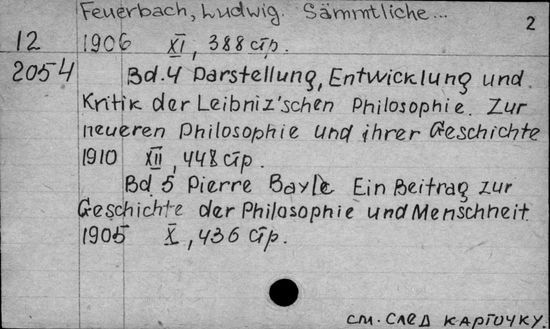 Feuerbach, Ludwig. Sämmtliche...
2
12 1906 XI, 388 стр.
2054 Bd. 4 Darstellung, Entwicklung und
Kritik der Leibniz'schen Philosophie. Zur
neueren Philosophie und ihrer Geschichte
1910 XII, 448 стр.
Bd 5 Pierre Bayle Ein Beitrag zur
Geschichte der Philosophie und Menschheit
1905 X, 436 стр.
см. след карточку.